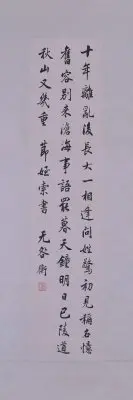 十年離亂後長大一相逢問姓驚初見稱名憶
舊容別來滄海事語罷暮天鐘明日巴陵道
秋山又幾重 姪索書